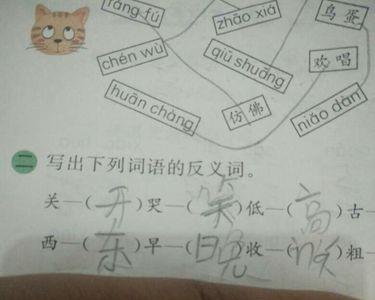 fǎng fú
zhāo xiá
鸟蛋
chén wù
qiū shuāng
欢唱
huān chàng
仿佛
niǎo dàn
二 写出下列词语的反义词。
关—(开)哭—(笑)低—(高)古—
西—(东)早—(晚)收—( )粗—